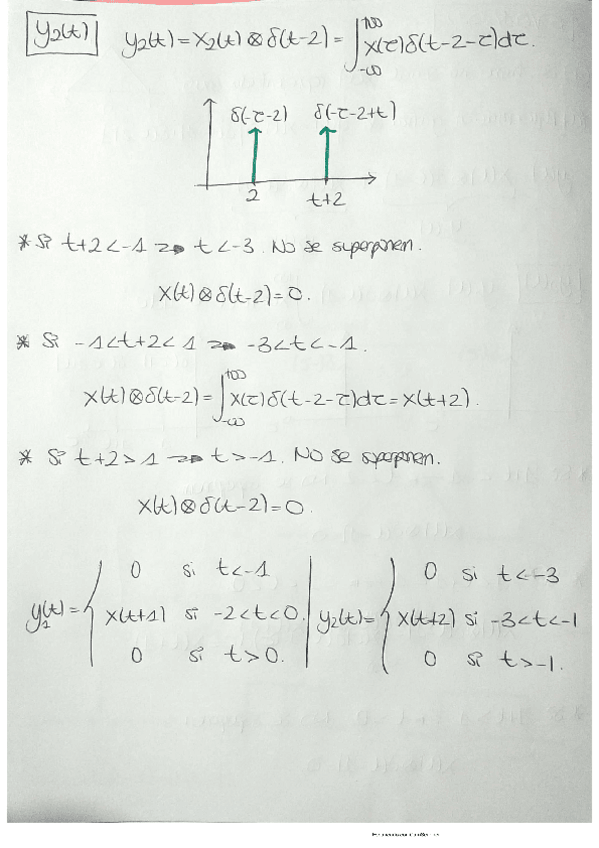 y₂(t) y₂(t) = x₂(t) ⊗ δ(t-2) = ∫_{-∞}^{+∞} x(τ)δ(t-2-τ)dτ.
δ(-τ-2) δ(-τ-2+t)
2 t+2
* Si t+2<-1 => t<-3. No se superponen.
x(t)⊗δ(t-2)=0.
* Si -1<t+2<1 => -3<t<-1.
x(t)⊗δ(t-2)=∫_{-∞}^{+∞} x(τ)δ(t-2-τ)dτ=x(t+2).
* Si t+2>1 => t>-1. No se superponen.
x(t)⊗δ(t-2)=0.
0 si t<-1 0 si t<-3
y₁(t)= x(t+1) si -2<t<0. y₂(t)= x(t+2) si -3<t<-1
0 si t>0. 0 si t>-1.